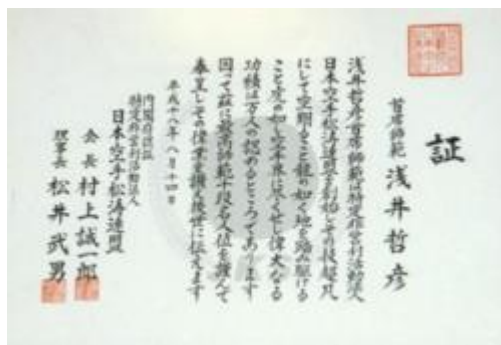 証
首席師範 浅井哲彦
浅井哲彦首席師範は特定非営利活動法人
日本空手松涛連盟 その技超凡
にして空翔ること龍の如く地を踏み駆ける
こと虎の如し空手界に尽くせし偉大なる
功積は万人の認めるところであります
因って茲に最高師範十段名人位を謹んで
奉呈しその偉業を讃え後世に伝えます
平成十八年八月十四日
内閣府認証
特定非営利活動法人
日本空手松涛連盟
会長 村上誠一郎
理事長 松井武男